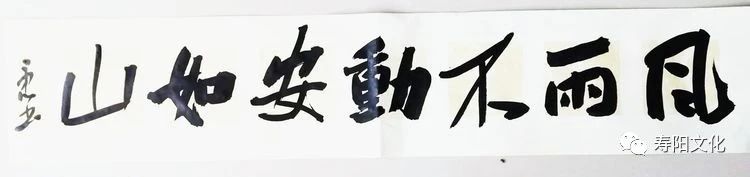 風雨不動安如山
寿阳文化